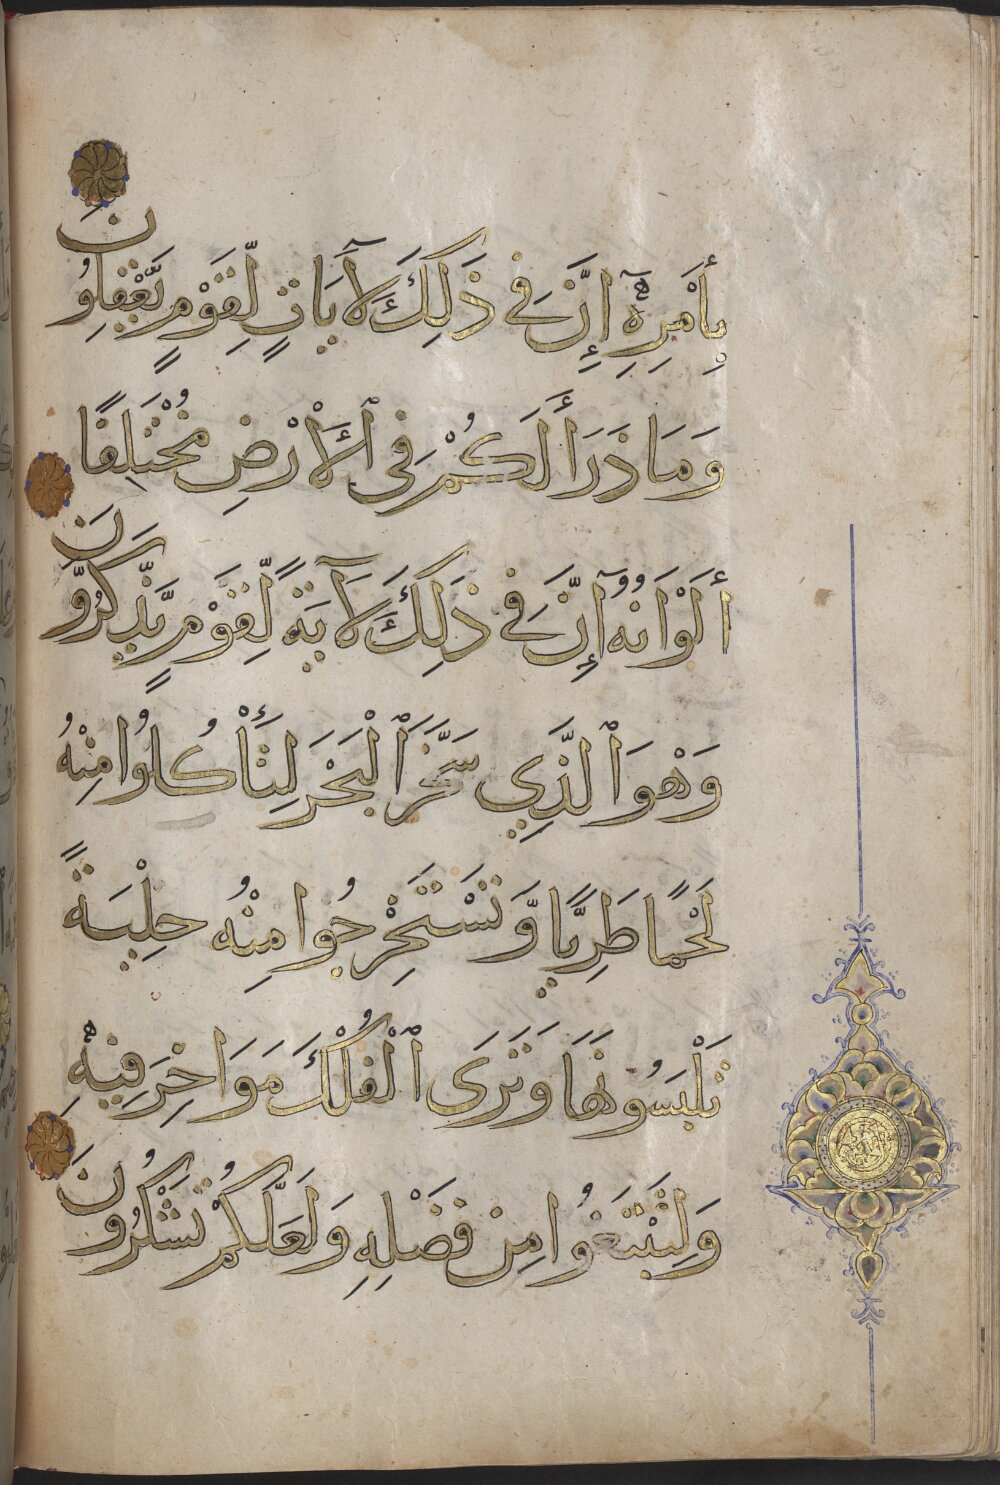 بِأَمْرِهِۦٓ إِنَّ فِي ذَلِكَ لَآيَاتٍ لِّقَوْمٍ يَّعْقِلُونَ
وَمَا ذَرَأَ لَكُمْ فِي ٱلْأَرْضِ مُخْتَلِفًا
أَلْوَانُهُۥٓ إِنَّ فِي ذَلِكَ لَآيَةً لِّقَوْمٍ يَّذَّكَّرُونَ
وَهْوَ ٱلَّذِي سَخَّرَ ٱلْبَحْرَ لِتَأْكُلُوا مِنْهُ
لَحْمًا طَرِيًّا وَّتَسْتَخْرِجُوا مِنْهُ حِلْيَةً
تَلْبَسُونَهَا وَتَرَى ٱلْفُلْكَ مَوَاخِرَ فِيهِ
وَلِتَبْتَغُوا مِن فَضْلِهِ وَلَعَلَّكُمْ تَشْكُرُونَ